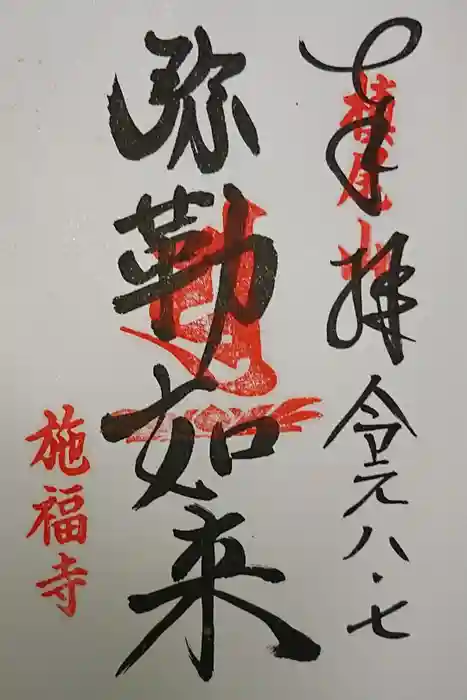 奉拝 令元八・七
槙尾山
弥勒如来
施福寺